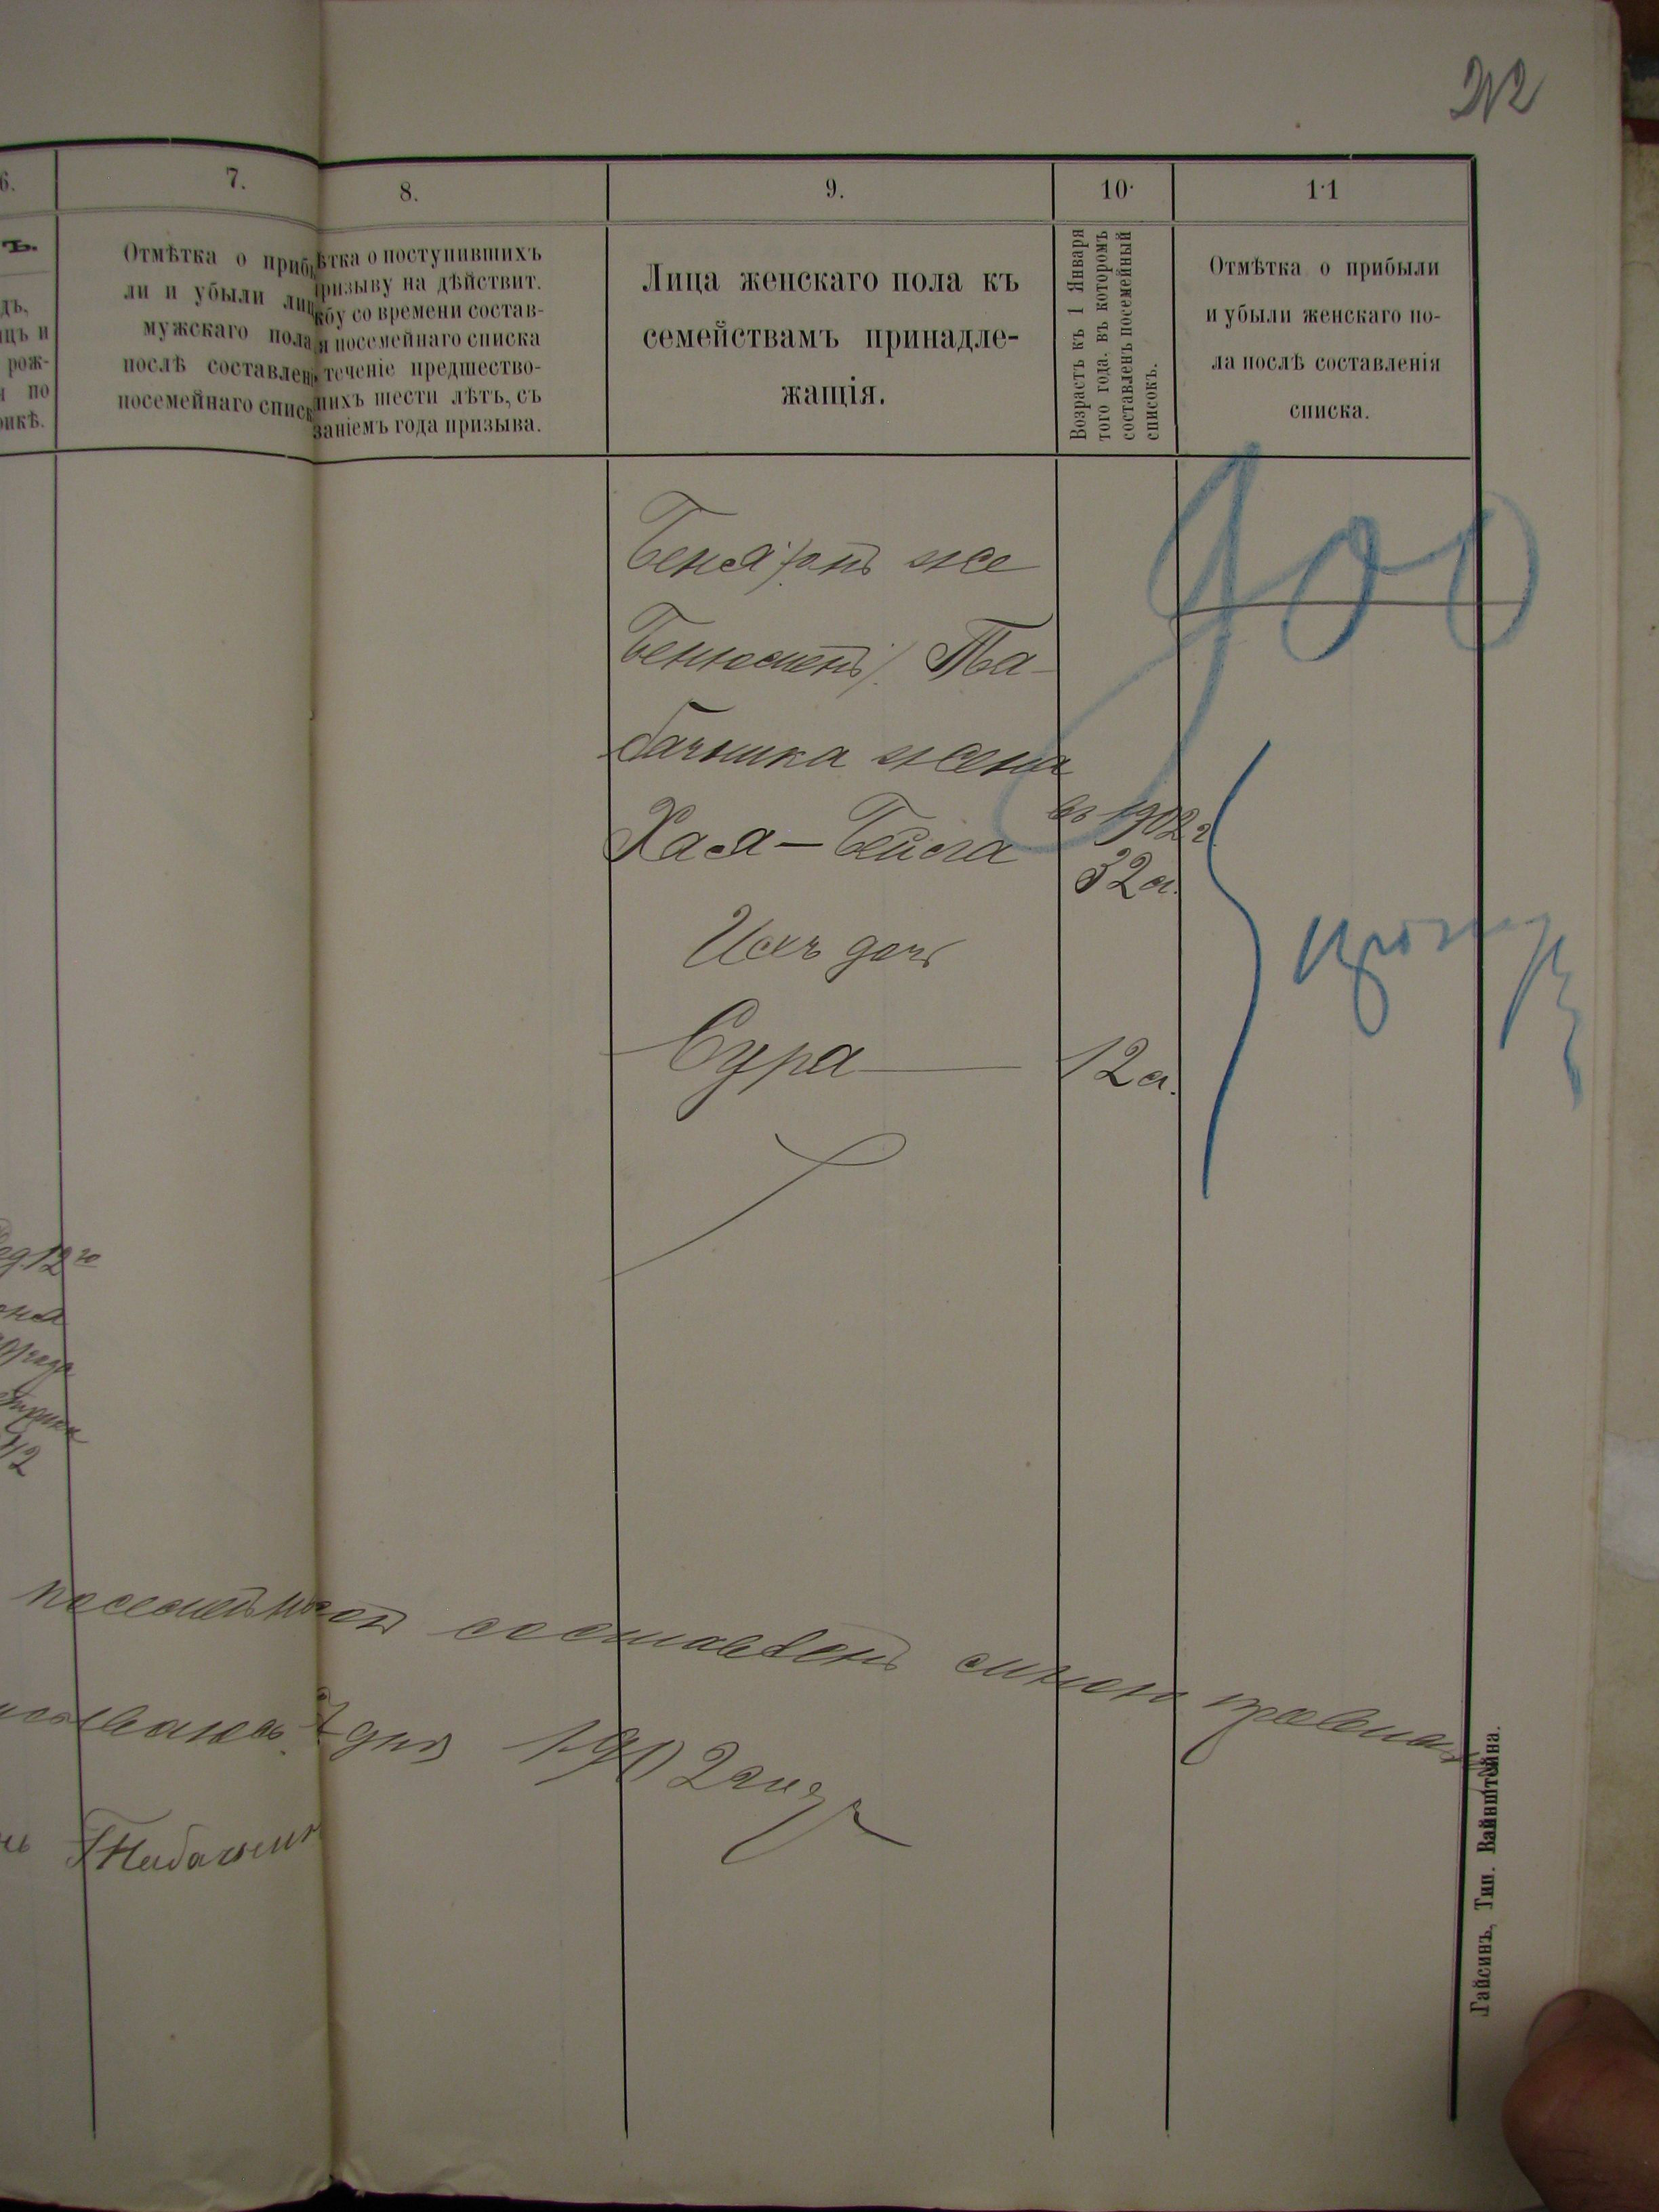 212
6.
7.
8.
9.
10.
11
ъ.
дъ,
яцъ и
рож-
я по
рикѣ.
Отмѣтка о приб
ли и убыли лиц
мужскаго пола
послѣ составлен
посемейнаго списк
ѣтка о поступившихъ
призыву на дѣйствит.
жбу со времени состав-
я посемейнаго списка
теченіе предшество-
шихъ шести лѣтъ, съ
заніемъ года призыва.
Лица женскаго пола къ
семействамъ принадле-
жащія.
Возрастъ къ 1 Января
того года, въ которомъ
составленъ посемейный
списокъ.
Отмѣтка о прибыли
и убыли женскаго по-
ла послѣ составленія
списка.
900
Беня /онъ же
Беніоменъ/. Та-
бачника жена
Хая-Бейла
въ 1902 г.
32 л.
Ихъ дочь
Сура
12 л.
12го
посемейной составленъ мною
7 дня 1902 года
Гайсинъ, Тип. Вайнштейна.